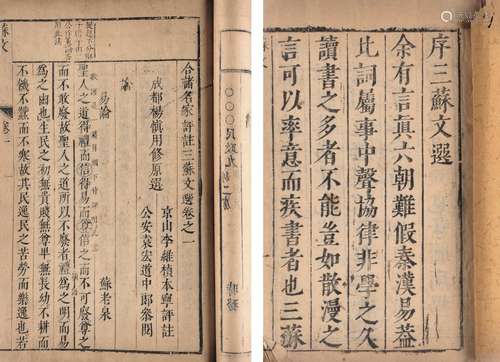 序三蘇文選
余有言真六朝難假秦漢易葢
比詞屬事中聲協律非學之久
讀書之多者不能豈如散漫之
言可以率意而疾書者也三蘇
合諸名家評註三蘇文選卷之一
京山李維楨本寧評註
成都楊慎用修原選
公安袁宏道中郎參閱
論
蘇老泉
易論
聖人之道得禮而信得易而尊信之而不可廢尊之
而不敢廢故聖人之道所以不廢者禮爲之明而易
爲之幽也生民之初無貴賤無尊卑無長幼不耕而
不饑不蠶而不寒故其民逸民之苦勞而樂逸也若
蘇文